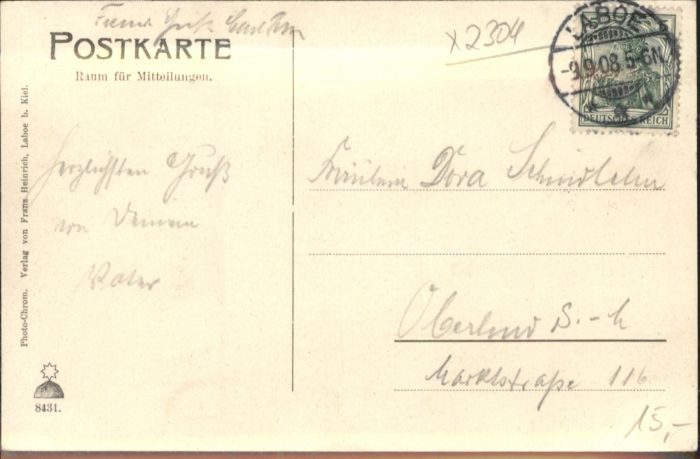 POSTKARTE
Raum für Mitteilungen.
x 2304
LABOE
-9.9.08. 5-6N.
DEUTSCHES REICH
Herzlichsten Gruß
von Deinem
Vater
Fräulein Dora
Marktstraße 116
15,-
Photo-Chrom. Verlag von Franz Heinrich, Laboe b. Kiel.
8431.